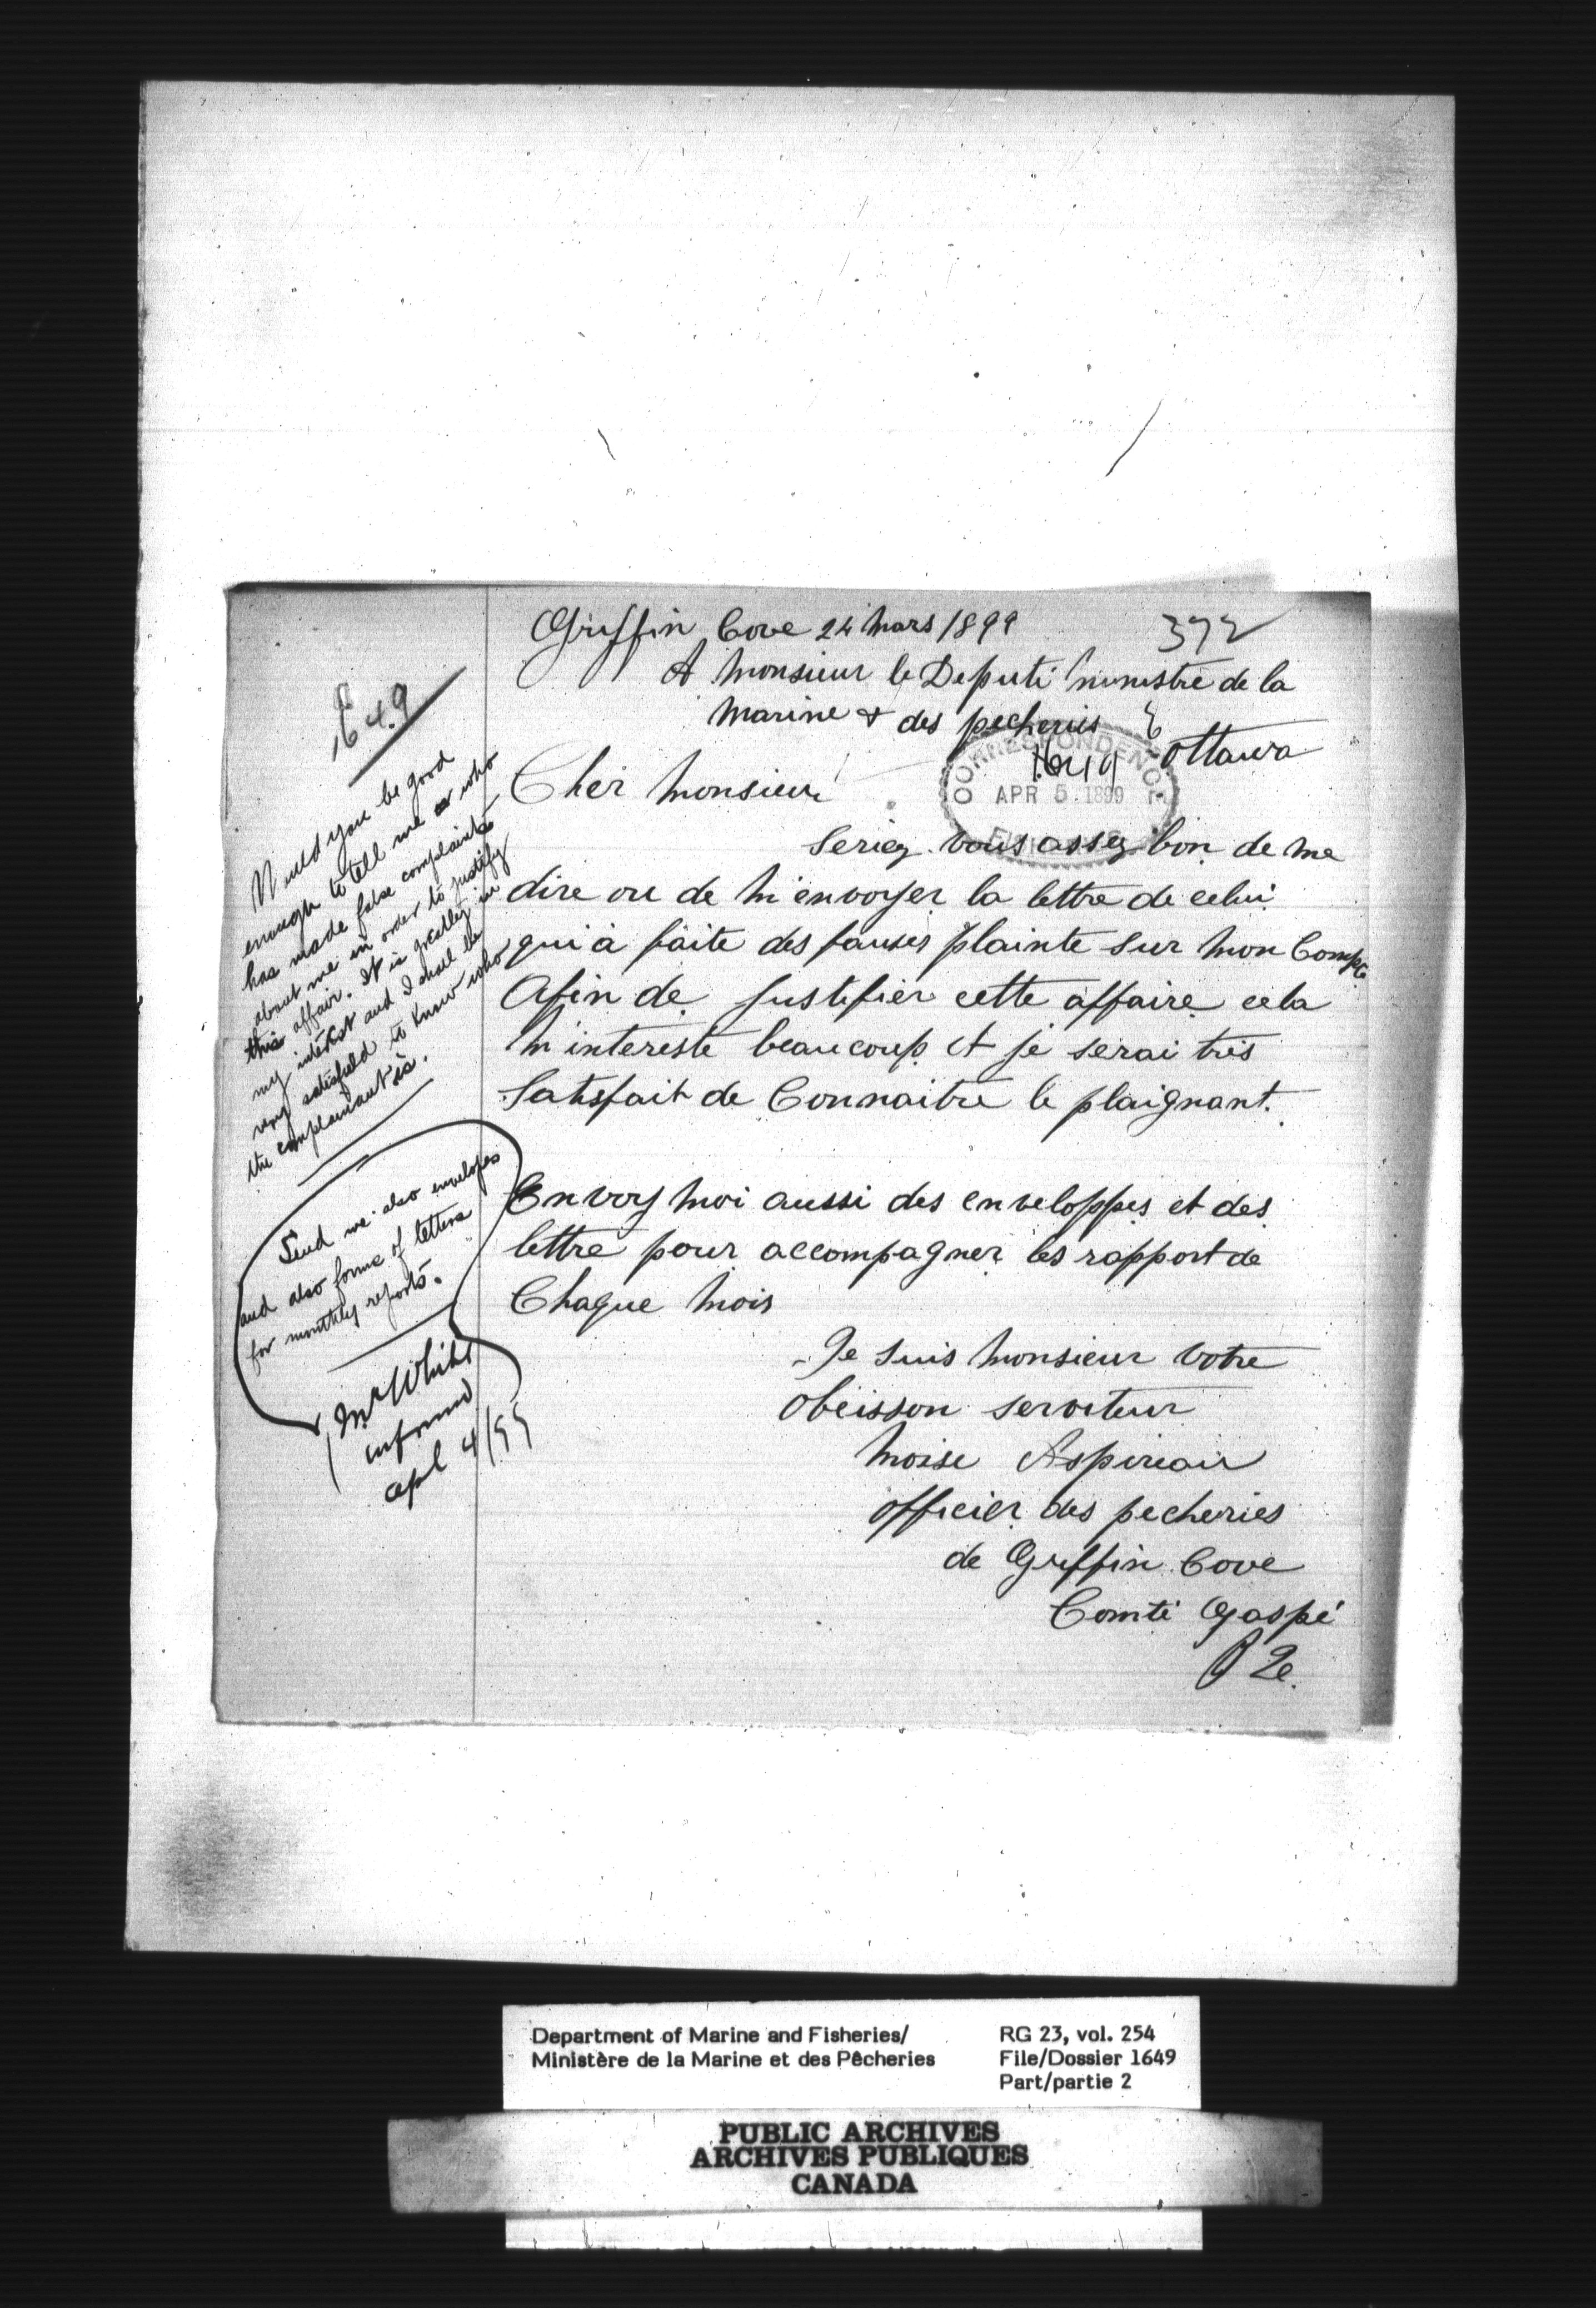 Griffin Cove 24 Mars 1899
372
A Monsieur le Deputé Ministre de la
Marine & des pecheries
Ottawa
CORRESPONDENCE
1649
APR 5. 1899
Cher Monsieur
Seriez vous assez bon de me
dire ou de m'envoyer la lettre de celui
qui à faite des fauses plainte sur mon Compte
Afin de Justifier cette affaire cela
m'intereste beaucoup et je serai tres
Satisfait de Connaitre le plaignant.
Envoy moi aussi des enveloppes et des
lettre pour accompagner les rapport de
Chaque Mois
Je suis Monsieur Votre
Obeisson serviteur
Moise Aspireau
officier des pecheries
de Griffin Cove
Comté Gaspé
P 2e.
1649
Would you be good
enough to tell me who
has made false complaints
about me in order to justify
this affair. It is greatly in
my interest and I shall be
very satisfied to know who
the complainant is.
Send me also envelopes
and also forms of letters
for monthly reports.
Mr White
informed
Apl 4/99
Department of Marine and Fisheries/
Ministère de la Marine et des Pêcheries
RG 23, vol. 254
File/Dossier 1649
Part/partie 2
PUBLIC ARCHIVES
ARCHIVES PUBLIQUES
CANADA